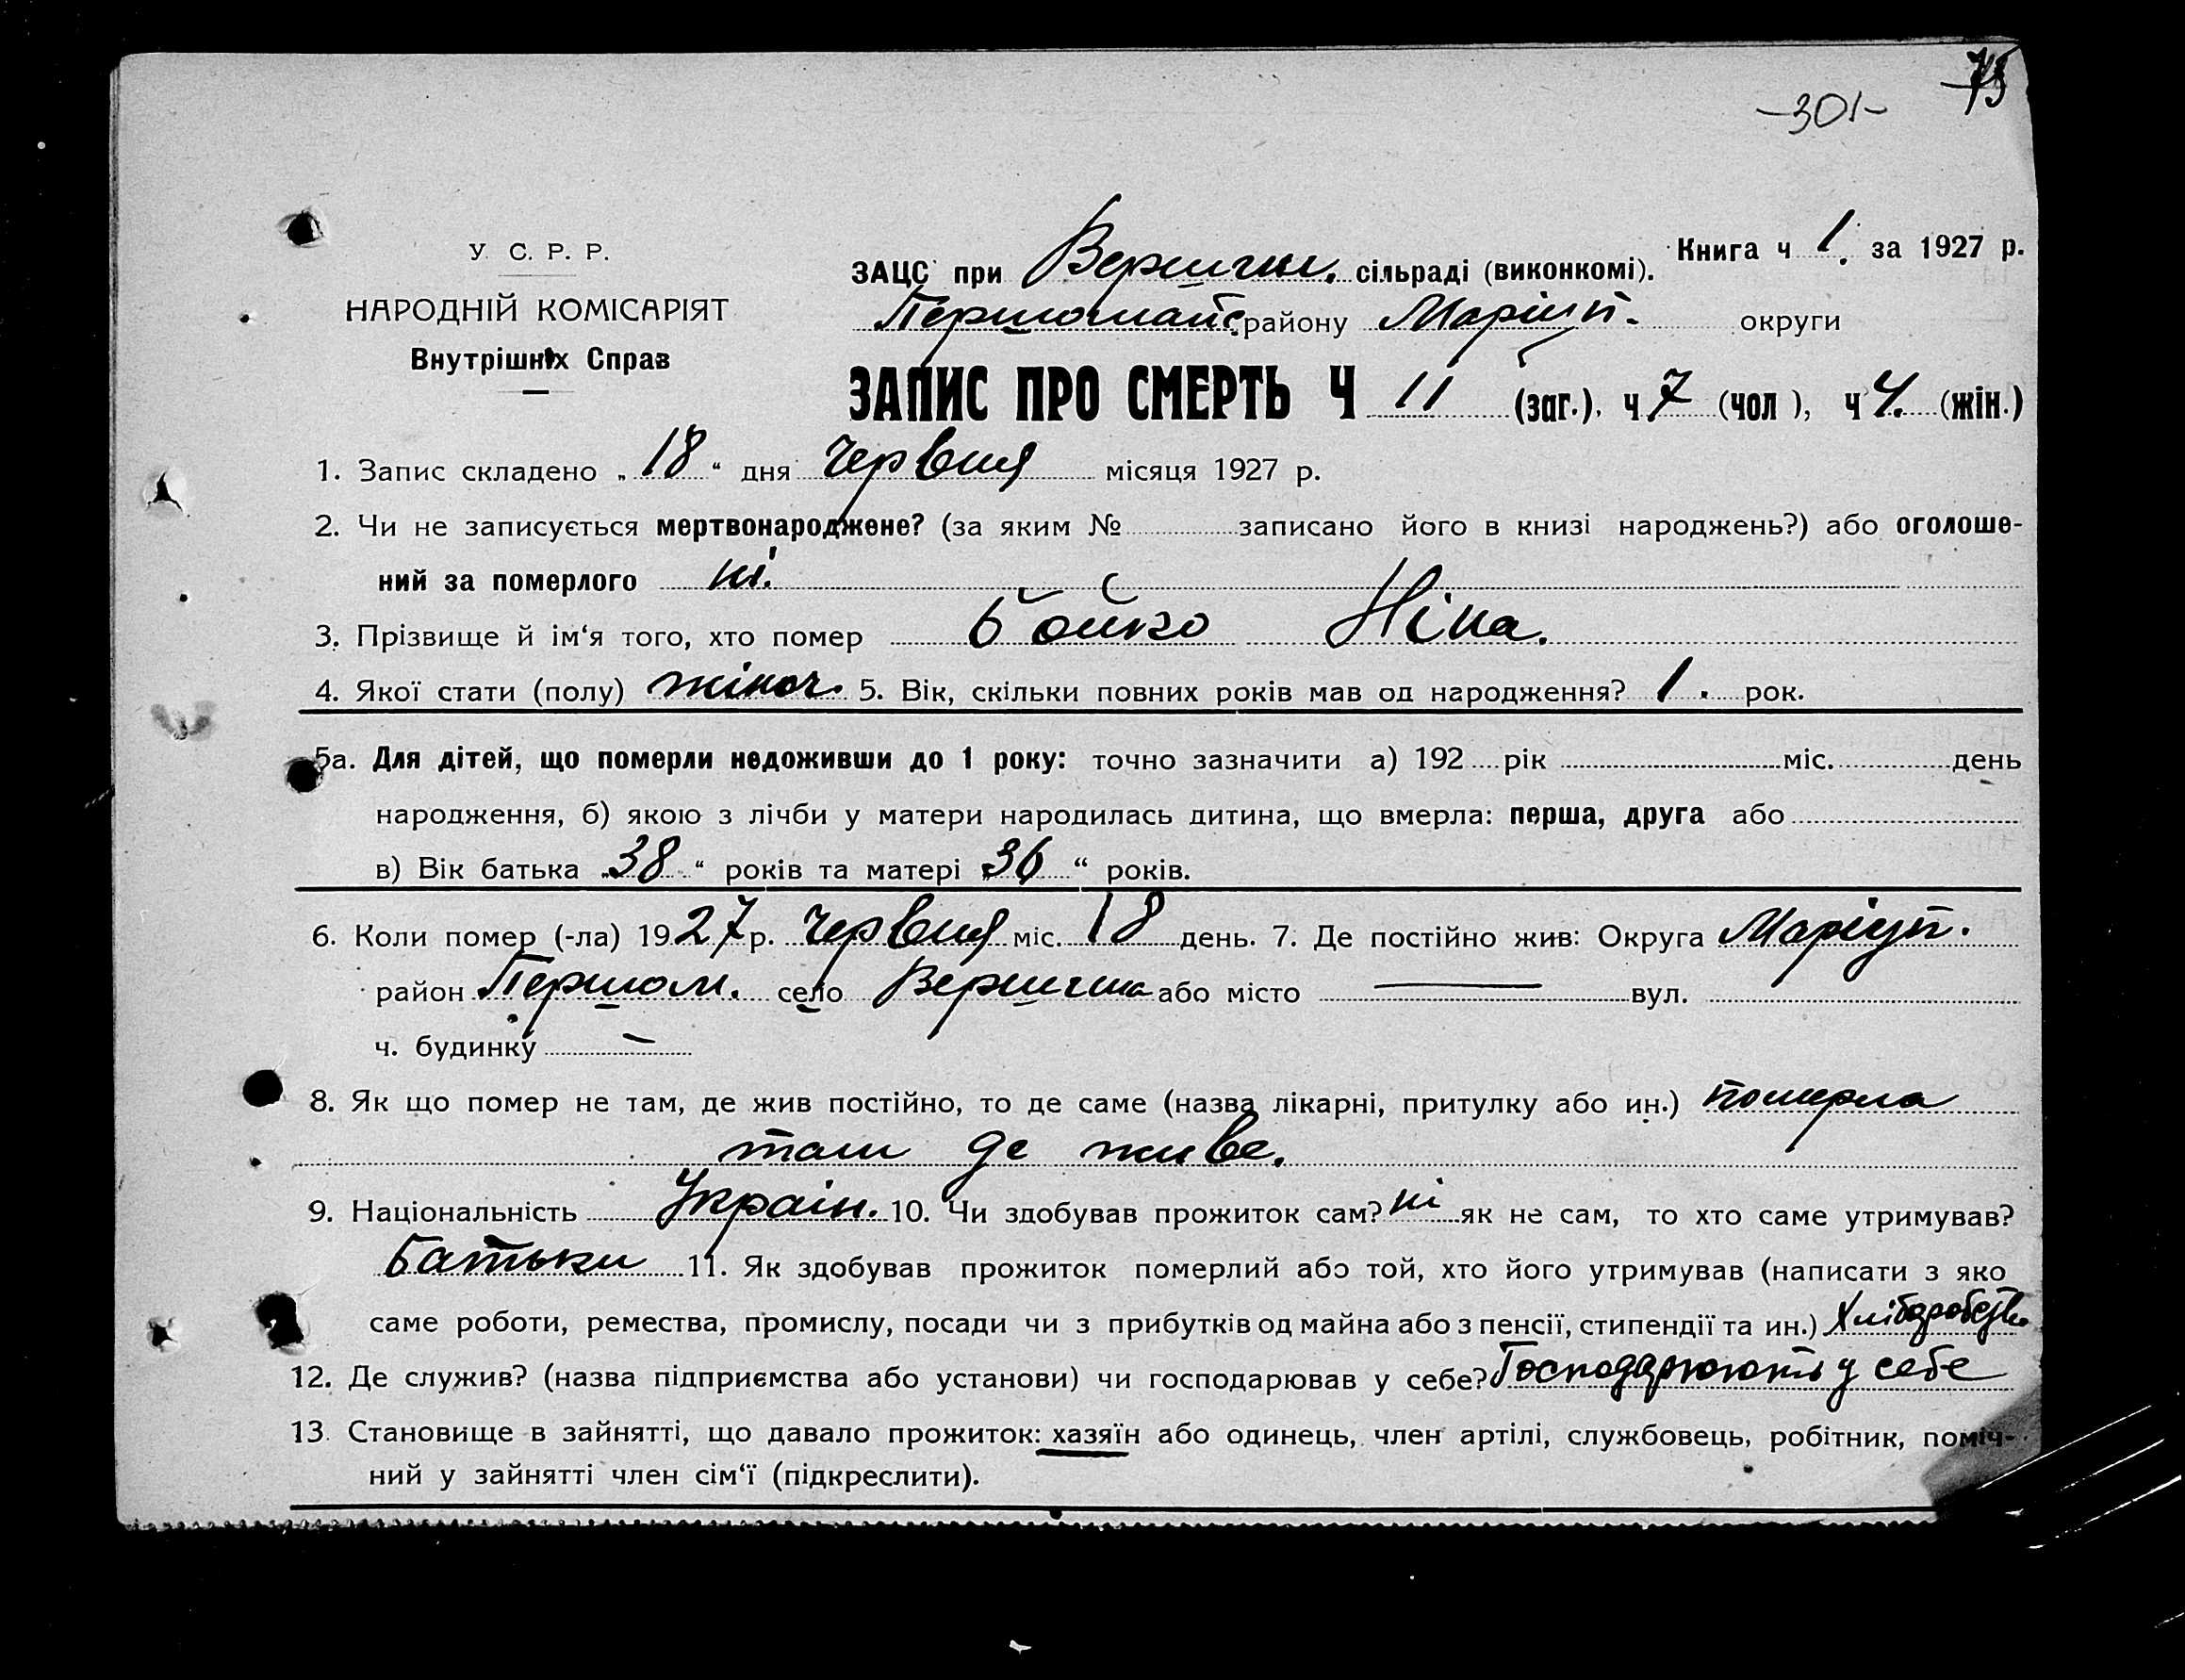 75
-301-
У. С. Р. Р.
НАРОДНІЙ КОМІСАРІЯТ
Внутрішніх Справ
Книга ч 1. за 1927 р.
ЗАЦС при Вершин. сільраді (виконкомі).
Першомайс. району Маріуп. округи
ЗАПИС ПРО СМЕРТЬ Ч 11 (заг.), ч 7 (чол), ч 4. (жін.)
1. Запис складено „18“ дня червня місяця 1927 р.
2. Чи не записується мертвонароджене? (за яким № записано його в книзі народжень?) або оголоше-
ний за померлого ні.
3. Прізвище й ім‘я того, хто помер Бойко Ніна.
4. Якої стати (полу) жіноч. 5. Вік, скільки повних років мав од народження? 1. рок.
5а. Для дітей, що померли недоживши до 1 року: точно зазначити а) 192 рік міс. день
народження, б) якою з лічби у матери народилась дитина, що вмерла: перша, друга або
в) Вік батька „38“ років та матері „36“ років.
6. Коли помер (-ла) 1927 р. червня міс. 18 день. 7. Де постійно жив: Округа Маріуп.
район Першом. село Вершина або місто — вул.
ч. будинку —
8. Як що помер не там, де жив постійно, то де саме (назва лікарні, притулку або ин.) померла
там де живе.
9. Національність Украін. 10. Чи здобував прожиток сам? ні як не сам, то хто саме утримував?
Батьки 11. Як здобував прожиток померлий або той, хто його утримував (написати з яко
саме роботи, ремества, промислу, посади чи з прибутків од майна або з пенсії, стипендії та ин.)
12. Де служив? (назва підприємства або установи) чи господарював у себе? Господарюють у себе
13. Становище в зайнятті, що давало прожиток: хазяїн або одинець, член артілі, службовець, робітник, поміч-
ний у зайнятті член сім‘ї (підкреслити).